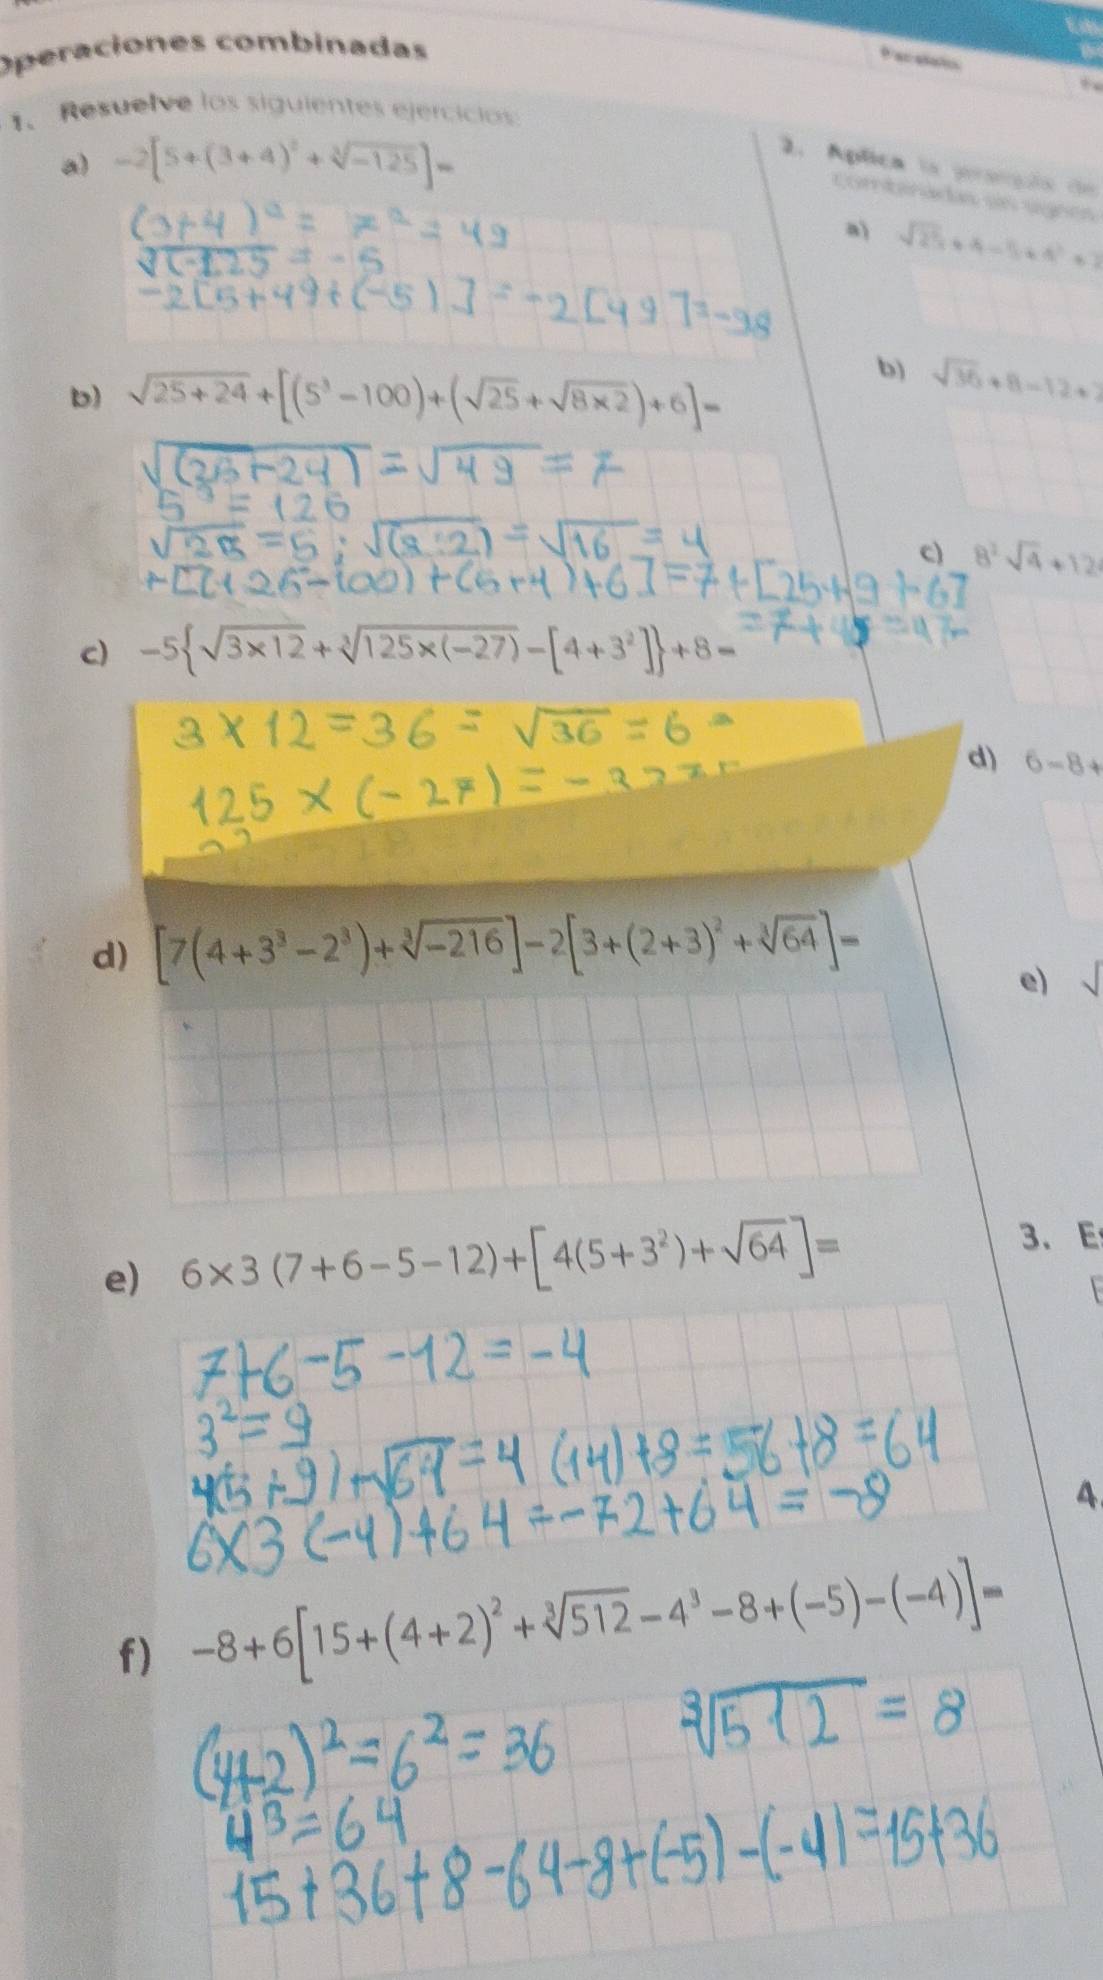 operaciones combinadas
Paralelo
1. Resuelve los siguientes ejercicios:
a) -2[5+(3+4)²+∛-125]=
(3+4)² = 7² = 49
∛(-125 = -5
-2[5+49+(-5)] = -2[49]=-98
b) √25+24+[(5³-100)+(√25+√8×2)+6]=
√(25+24) = √49 = 7
5³ = 125
√25 = 5; √(8·2) = √16 = 4
+[(125-100)+(5+4)+6]=7+[25+9+6]
=7+40=47
c) -5{√3×12+∛125×(-27)-[4+3²]}+8=
3×12=36=√36=6
125×(-27)=-3375
d) [7(4+3³-2³)+∛-216]-2[3+(2+3)²+∛64]=
e) 6×3(7+6-5-12)+[4(5+3²)+√64]=
7+6-5-12=-4
3²=9
4(5+9)+√64=4(14)+8=56+8=64
6×3(-4)+64=-72+64=-8
f) -8+6[15+(4+2)²+∛512-4³-8+(-5)-(-4)]=
(4+2)²=6²=36 ∛512=8
4³=64
15+36+8-64-8+(-5)-(-4)=15+36
2. Aplica la jerarquía de
combinadas sin signos
a) √25+4-5+4²+2
b) √36+8-12+2
c) 8²√4+12
d) 6-8+
e) √
3. E
4.